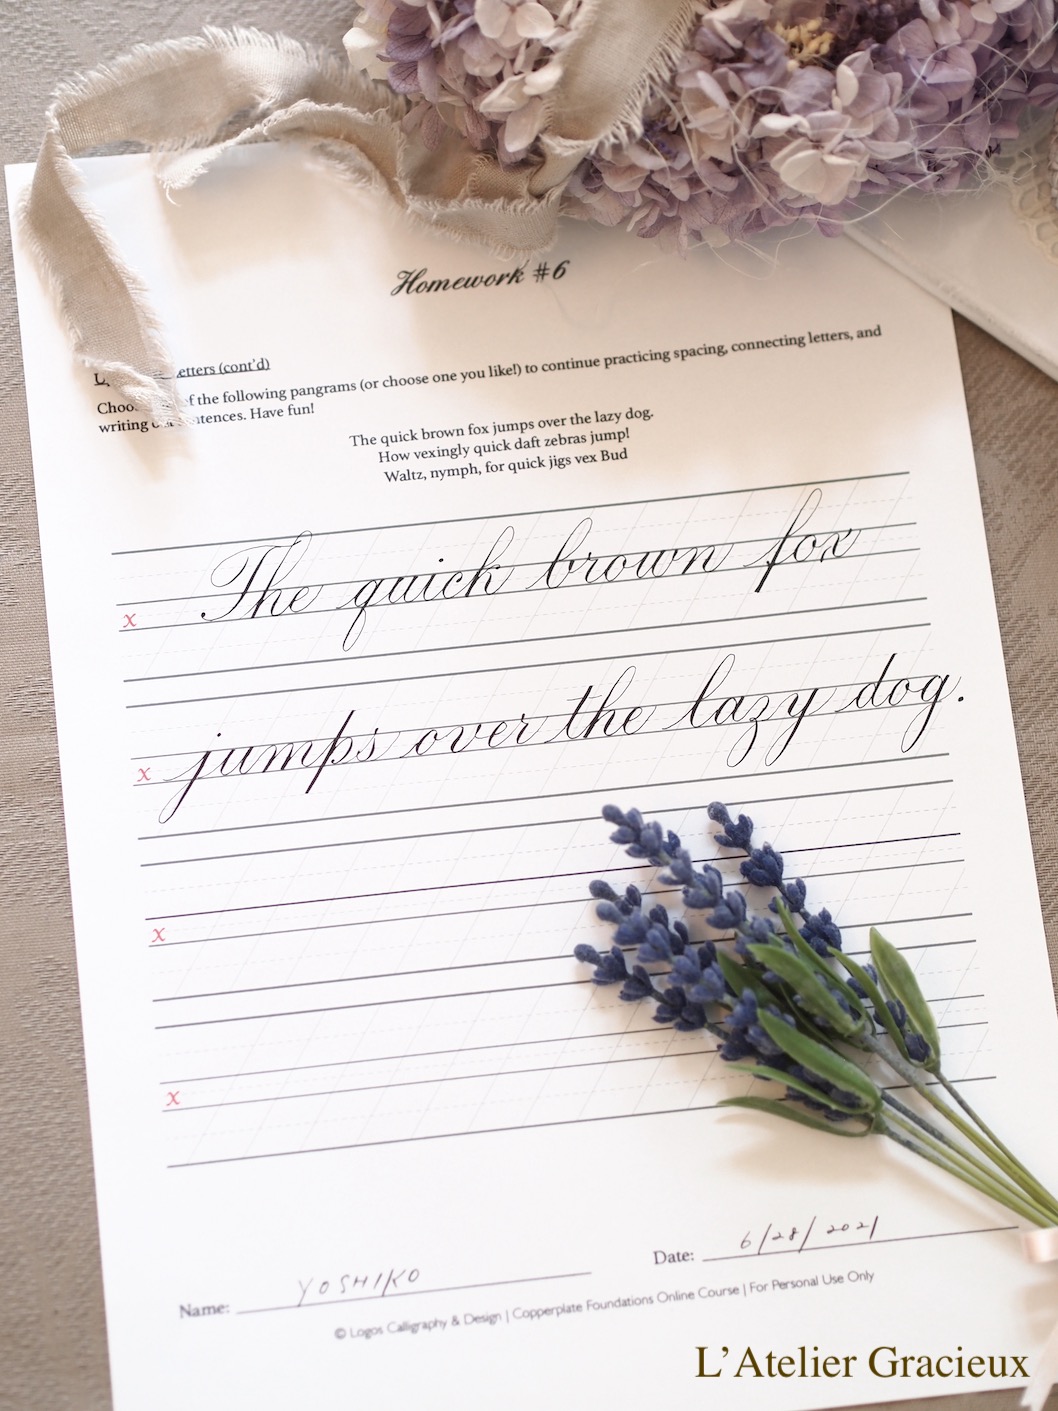 Homework #6
etters (cont'd)
of the following pangrams (or choose one you like!) to continue practicing spacing, connecting letters, and
writing sentences. Have fun!
The quick brown fox jumps over the lazy dog.
How vexingly quick daft zebras jump!
Waltz, nymph, for quick jigs vex Bud
x The quick brown fox
x jumps over the lazy dog.
x
x
Name: YOSHIKO Date: 6/28/2021
© Logos Calligraphy & Design | Copperplate Foundations Online Course | For Personal Use Only
L'Atelier Gracieux